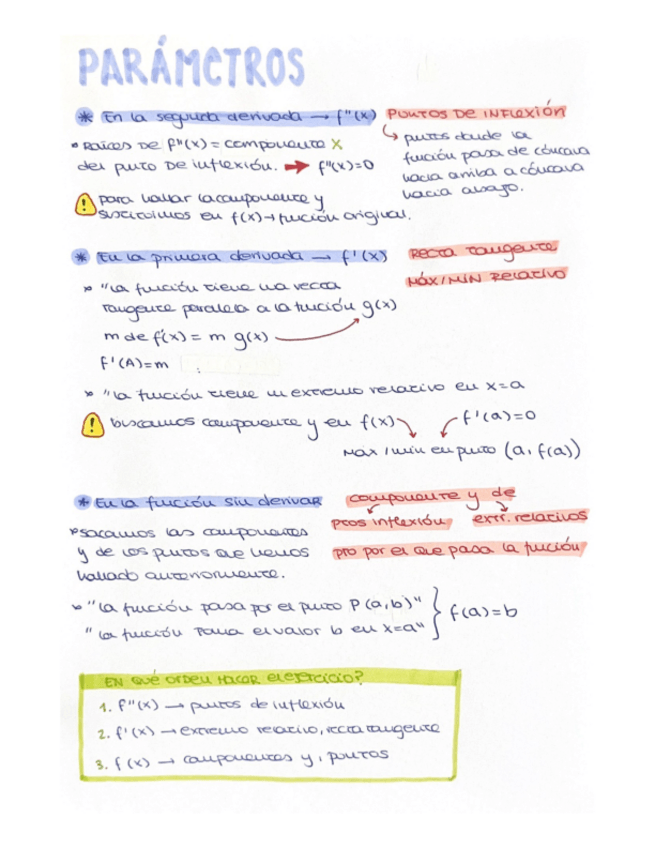 PARÁMETROS
* En la segunda derivada → f''(x) PUNTOS DE INFLEXIÓN
↳ puntos donde la función pasa de cóncava hacia arriba a cóncava hacia abajo.
• RAÍCES DE f''(x) = componente X
del punto DE inflexión. → f''(x)=0
para hallar la componente y
sustituimos en f(x) → función original.
* En la primera derivada → f'(x) RECTA TANGENTE
MÁX/MIN RELATIVO
"La función tiene una recta
tangente paralela a la función g(x)
m de f'(x) = m g(x)
f'(A)=m
"la función tiene un extremo relativo en x=a
buscamos componente y en f(x) f'(a)=0
Máx/min en punto (a, f(a))
* En la función sin derivar componente y de
ptos inflexión extr. relativos
pto por el que pasa la función
sacamos las componentes
y de los puntos que hemos
hallado anteriormente.
"la función pasa por el punto P(a,b)"
"la función toma el valor b en x=a" } f(a)=b
EN QUÉ ORDEN HACER el ejercicio?
1. f''(x) → puntos de inflexión
2. f'(x) → extremo relativo, recta tangente
3. f(x) → componentes y, puntos